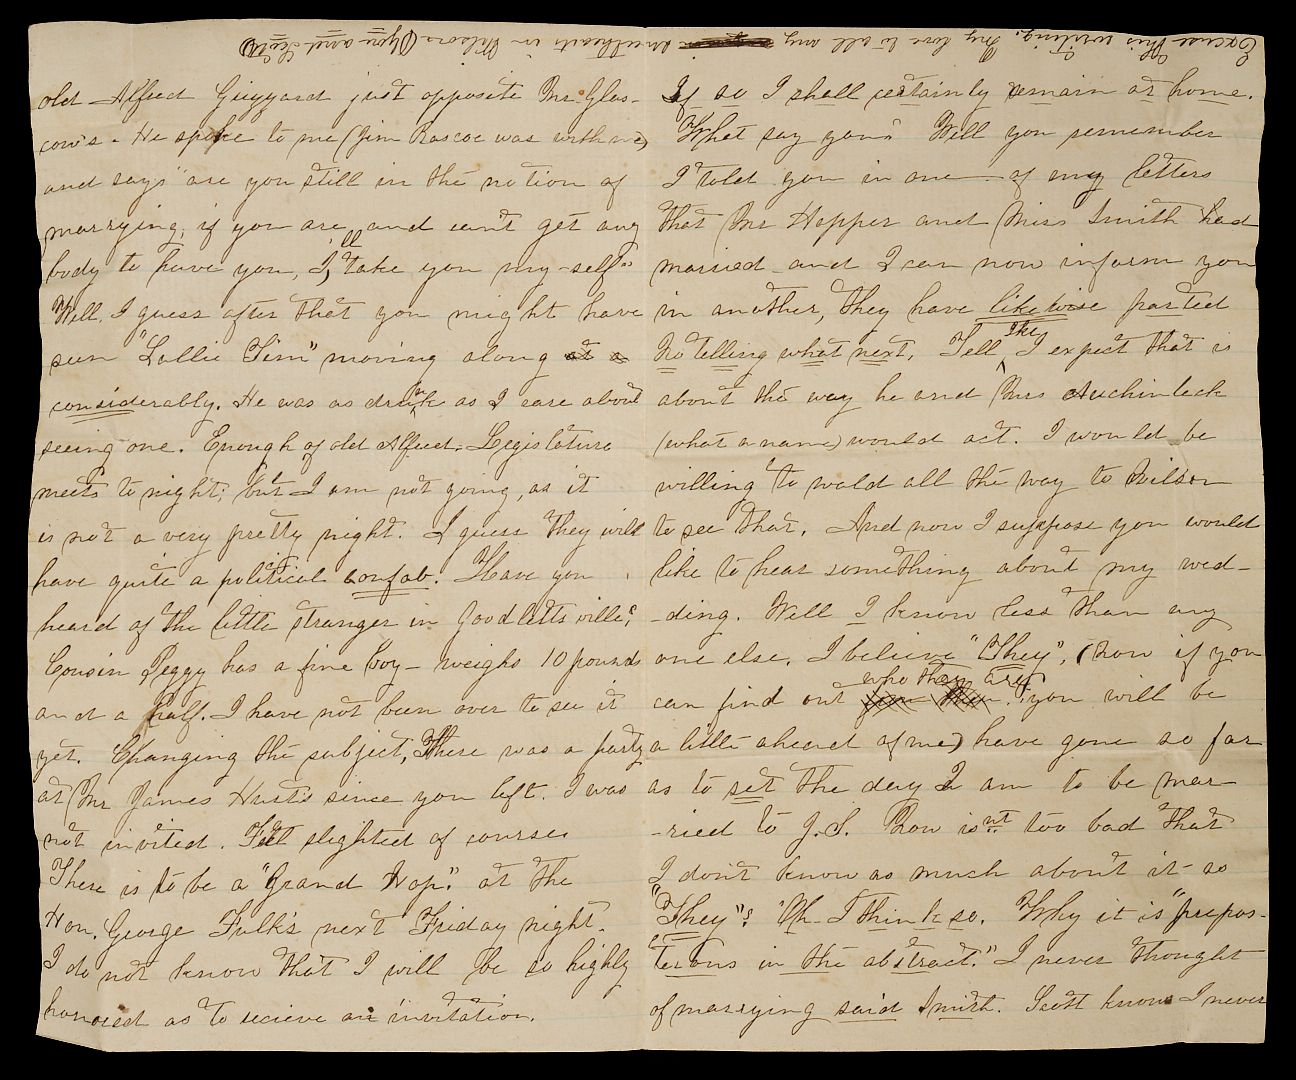 Excuse this writing. My love to all my sweethearts in Wilson (You and Scott)
old Alfred Guggard just opposite Mr. Glas-
cow's. He spoke to me (Jim Bascoe was with me)
and says "are you still in the notion of
marrying, if you are, and can't get any
body to have you, I'll take you my-self"
Well, I guess after that you might have
seen "Lollie Tim" moving along
considerably. He was as drunk as I care about
seeing one. Enough of old Alfred. Legislature
meets to night; but I am not going, as it
is not a very pretty night. I guess they will
have quite a political confab. Have you
heard of the little stranger in Goodlettsville?
Cousin Peggy has a fine boy - weighs 10 pounds
and a half. I have not been over to see it
yet. Changing the subject, There was a party
at Mr James Hurt's since you left. I was
not invited. Felt slighted of course
There is to be a "Grand Hop." at the
Hon. George Fulk's next Friday night.
I do not know that I will be so highly
honored as to recieve an invitation.
If so I shall certainly remain at home.
What say you? Well you remember
I told you in one of my letters
that Mr Hopper and Miss Smith had
married and I can now inform you
in another, they have likewise parted
No telling what next. Tell Ikey I expect that is
about the way he and Mrs Auchinleck
(what a name) would act. I would be
willing to wald all the way to Wilson
to see that. And now I suppose you would
like to hear something about my wed-
-ding. Well I know less than any
one else. I believe "They", (now if you
can find out who they are, you will be
a little ahead of me) have gone so far
as to set the day I am to be mar-
-ried to J. S. Now isnt too bad that
I don't know as much about it as
"They"? Oh I think so. Why it is "prepos-
terous in the abstract." I never thought
of marrying said Smith. Scott knows I never